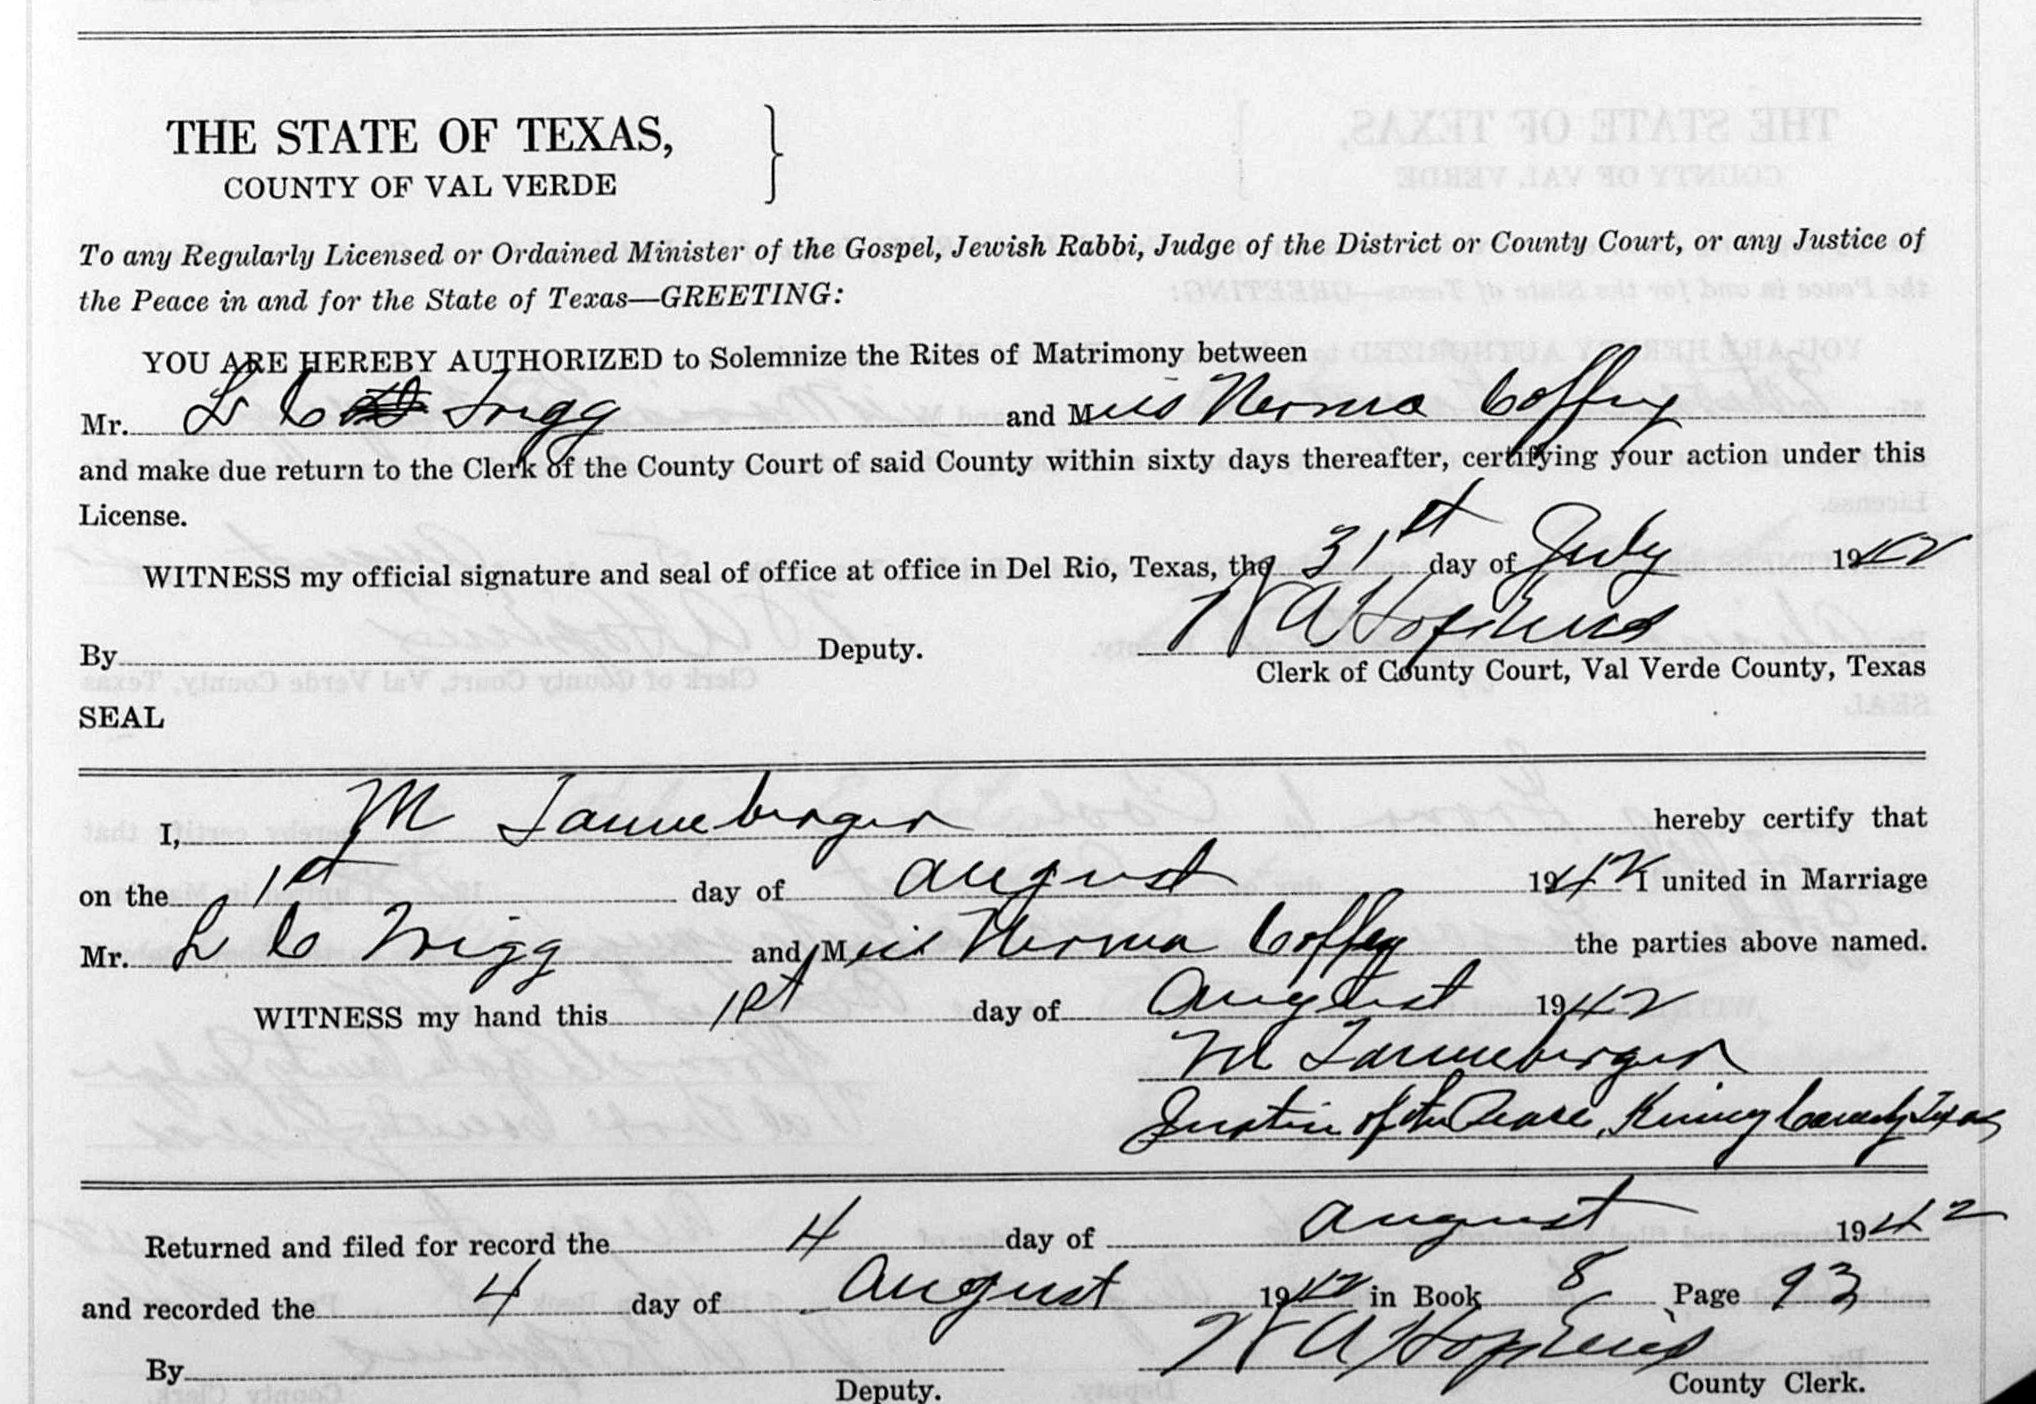 THE STATE OF TEXAS,
COUNTY OF VAL VERDE
To any Regularly Licensed or Ordained Minister of the Gospel, Jewish Rabbi, Judge of the District or County Court, or any Justice of
the Peace in and for the State of Texas—GREETING:
YOU ARE HEREBY AUTHORIZED to Solemnize the Rites of Matrimony between
Mr. L C Trigg and Miss Norma Coffey
and make due return to the Clerk of the County Court of said County within sixty days thereafter, certifying your action under this
License.
WITNESS my official signature and seal of office at office in Del Rio, Texas, the 31st day of July 1942
W A Hopkins
By Deputy.
Clerk of County Court, Val Verde County, Texas
SEAL
I, M hereby certify that
on the 1st day of August 1942 I united in Marriage
Mr. L C Trigg and Miss Norma Coffey the parties above named.
WITNESS my hand this 1st day of August 1942
M
Justice of the Peace, Kinney County Texas
Returned and filed for record the 4 day of August 1942
and recorded the 4 day of August 1942 in Book 8 Page 93
W A Hopkins
By Deputy.
County Clerk.